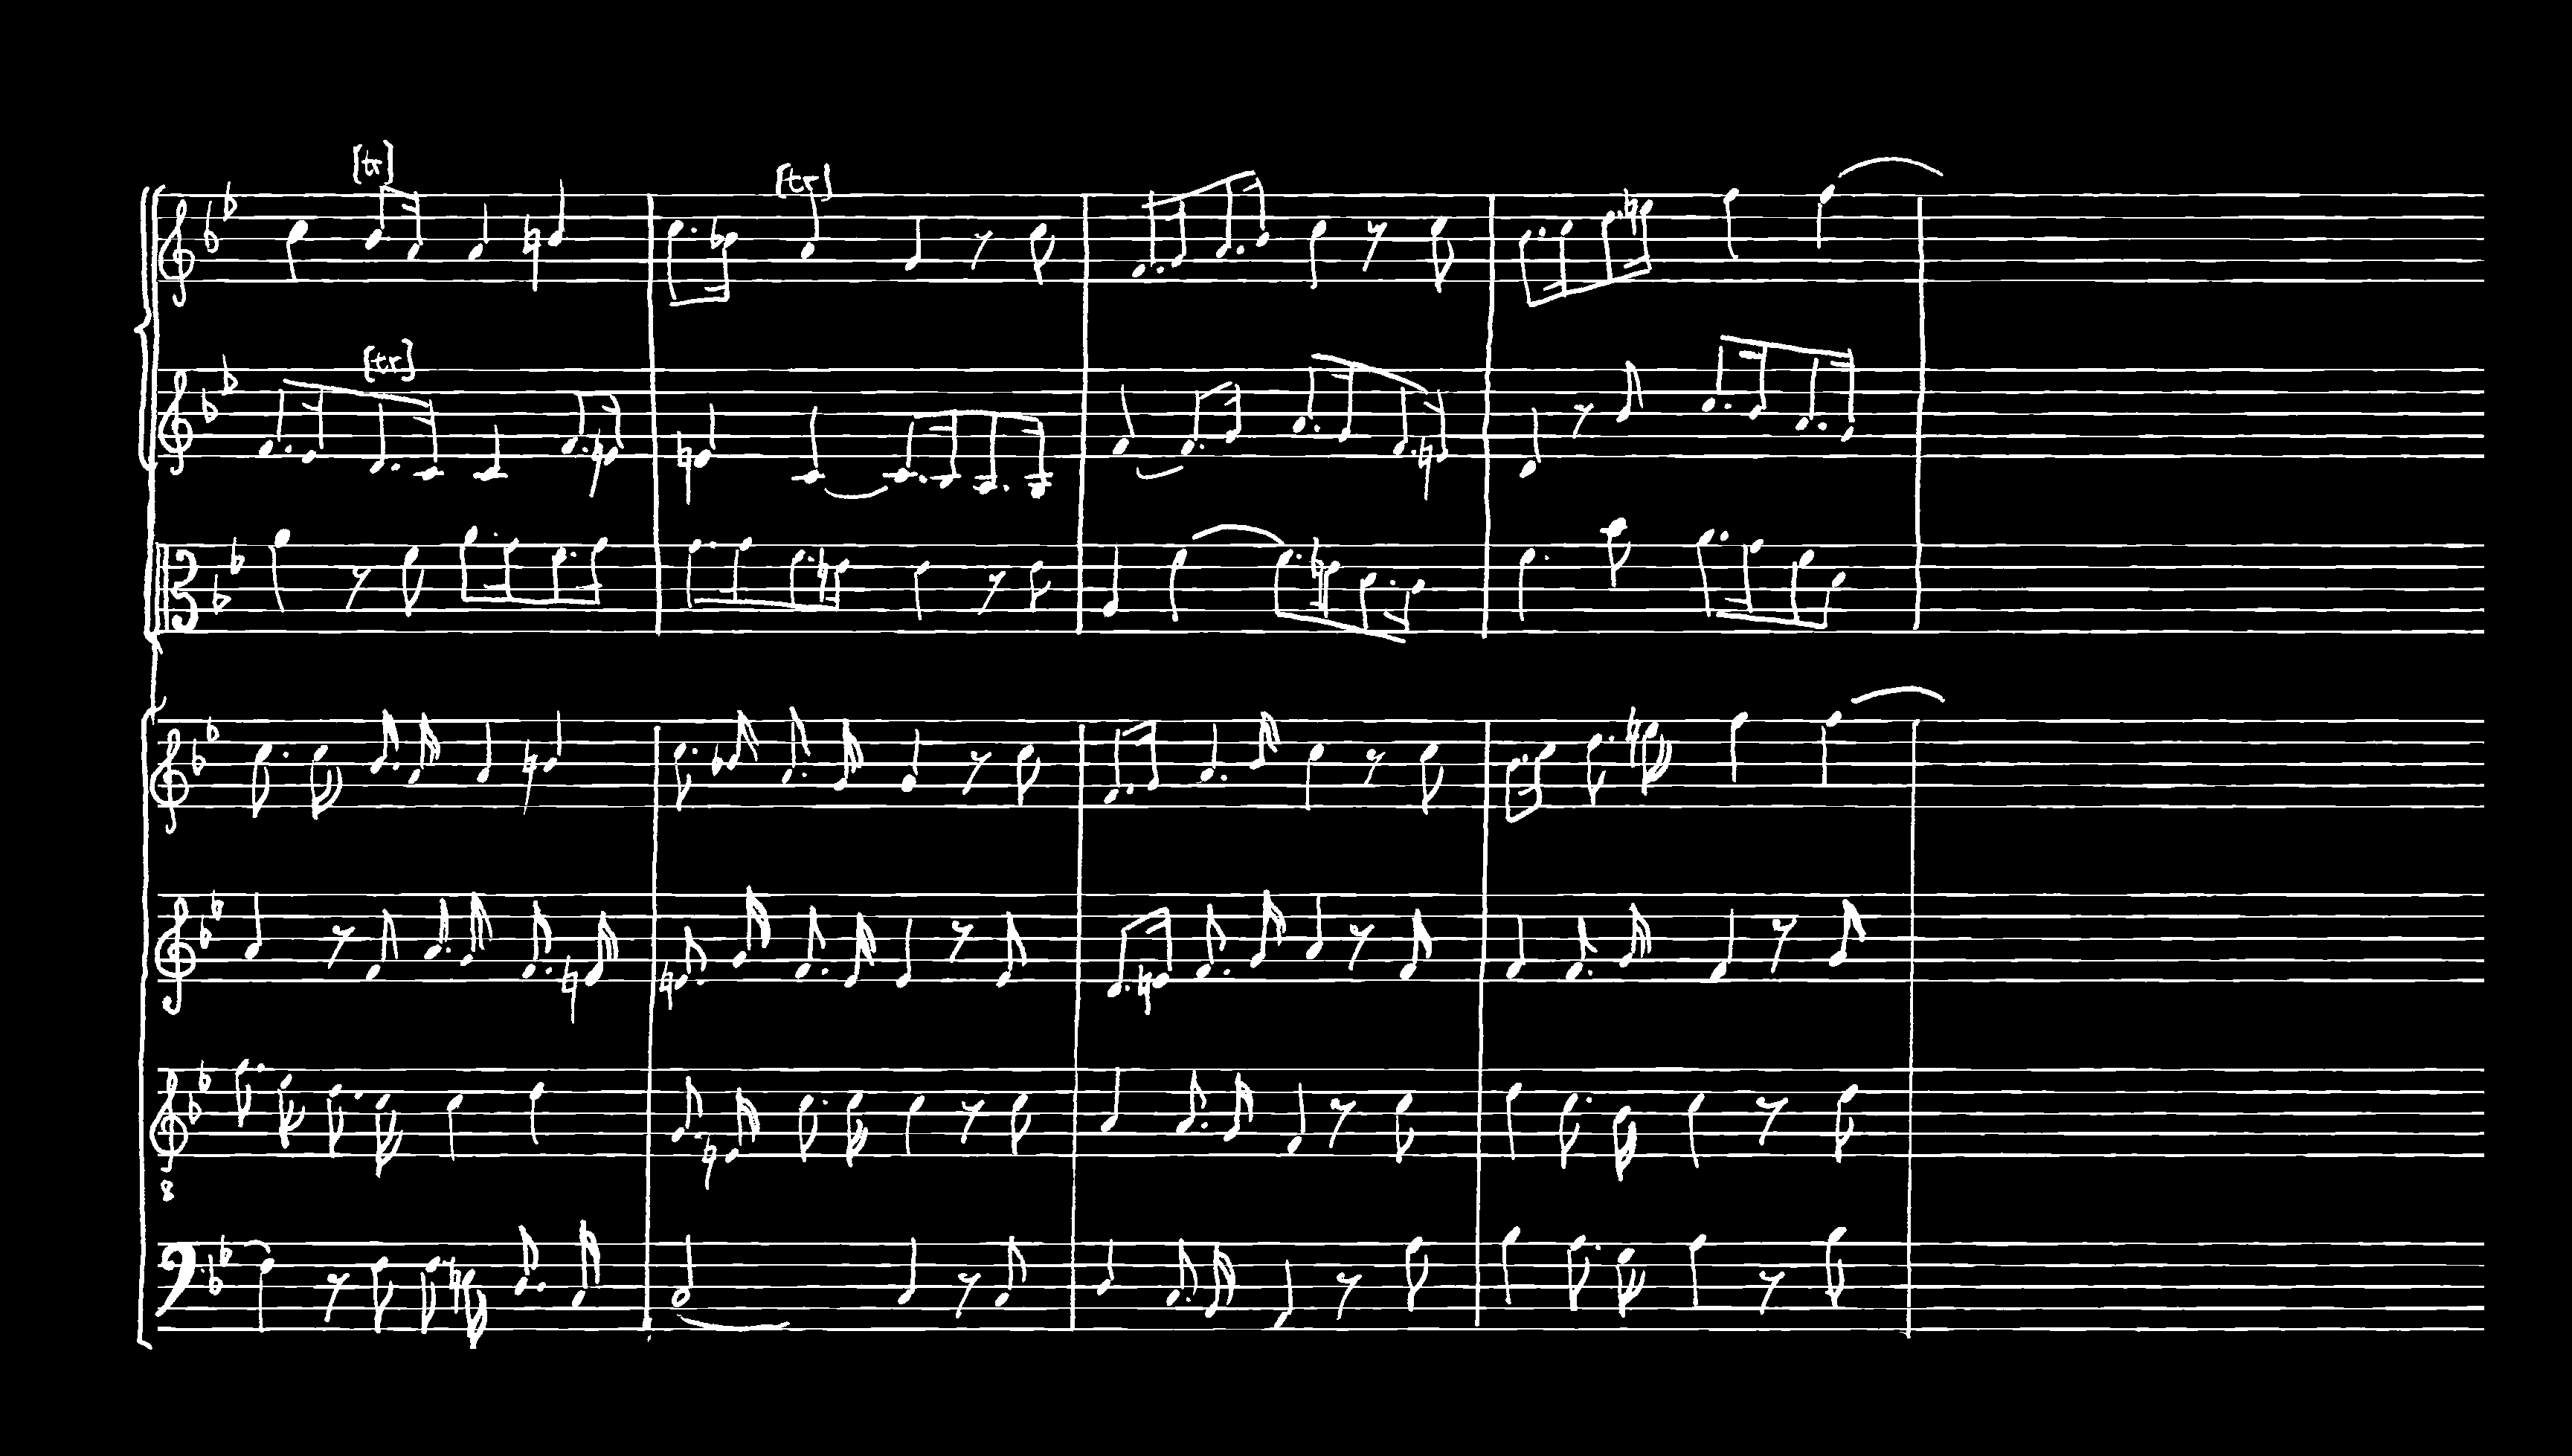 [tr]
[tr]
[tr]
8